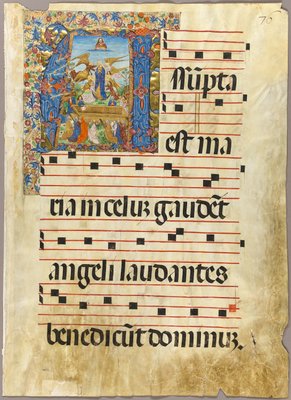 Assūpta
est ma
ria in celuꝫ gaudēt
angeli laudantes
benedicūt dominuꝫ.